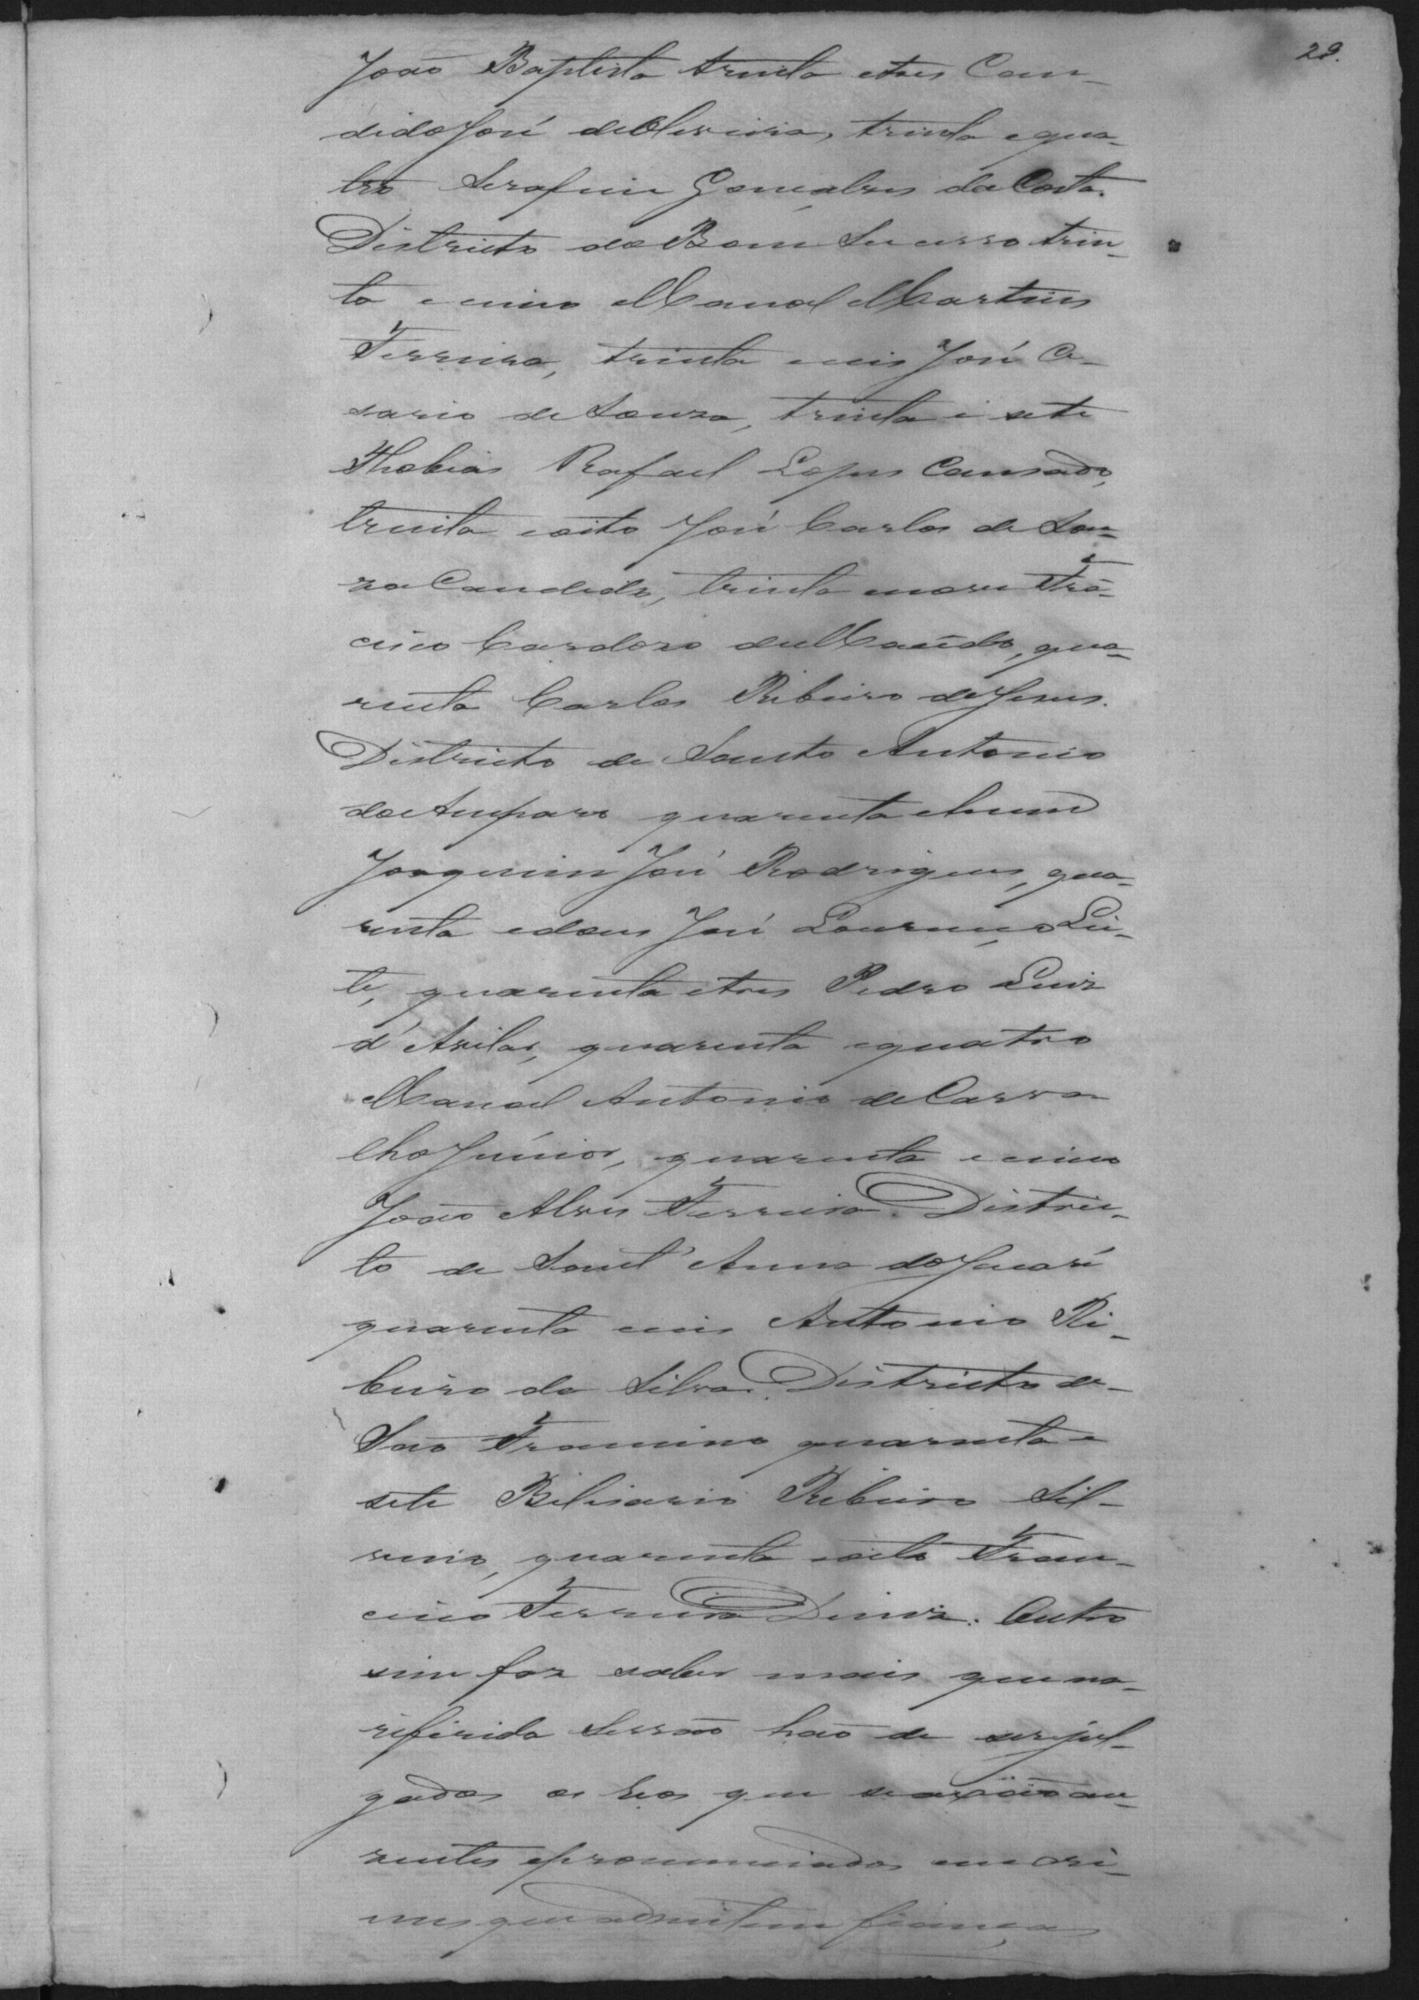 29.
João Baptista trinta e tres Can-
dido José de Oliveira, trinta e qua-
tro Serafim Gonçalves da Costa.
Districto do Bom Successo trin-
ta e cinco Manoel Martins
Ferreira, trinta e seis José Ce-
sario de Souza, trinta e sete
Thobias Rafael Lopes Cansado,
trinta e oito José Carlos de Sou-
za Candido, trinta e nove Frã-
cisco Cardoso de Macêdo, qua-
renta Carlos Ribeiro de Jesus.
Districto de Santo Antonio
do Amparo quarenta e hum
Joaquim José Rodrigues, qua-
renta e dous José Lourenço Lei-
te, quarenta e tres Pedro Luiz
d'Avila, quarenta e quatro
Manoel Antonio de Carva
lho Junior, quarenta e cinco
João Alves Ferreira. Distric-
to de Sant'Anna do Jacaré
quarenta e seis Antonio Ri-
beiro da Silva. Districto de
São Francisco quarenta e
sete Belisario Ribeiro Sil-
verio, quarenta e oito Fran-
cisco Ferreira Diniz. Outro
sim faz saber mais que na
referida Sessão hão de ser jul-
gados os Reos que se achão au-
zentes e pronunciados em cri-
mes que admittem fiança